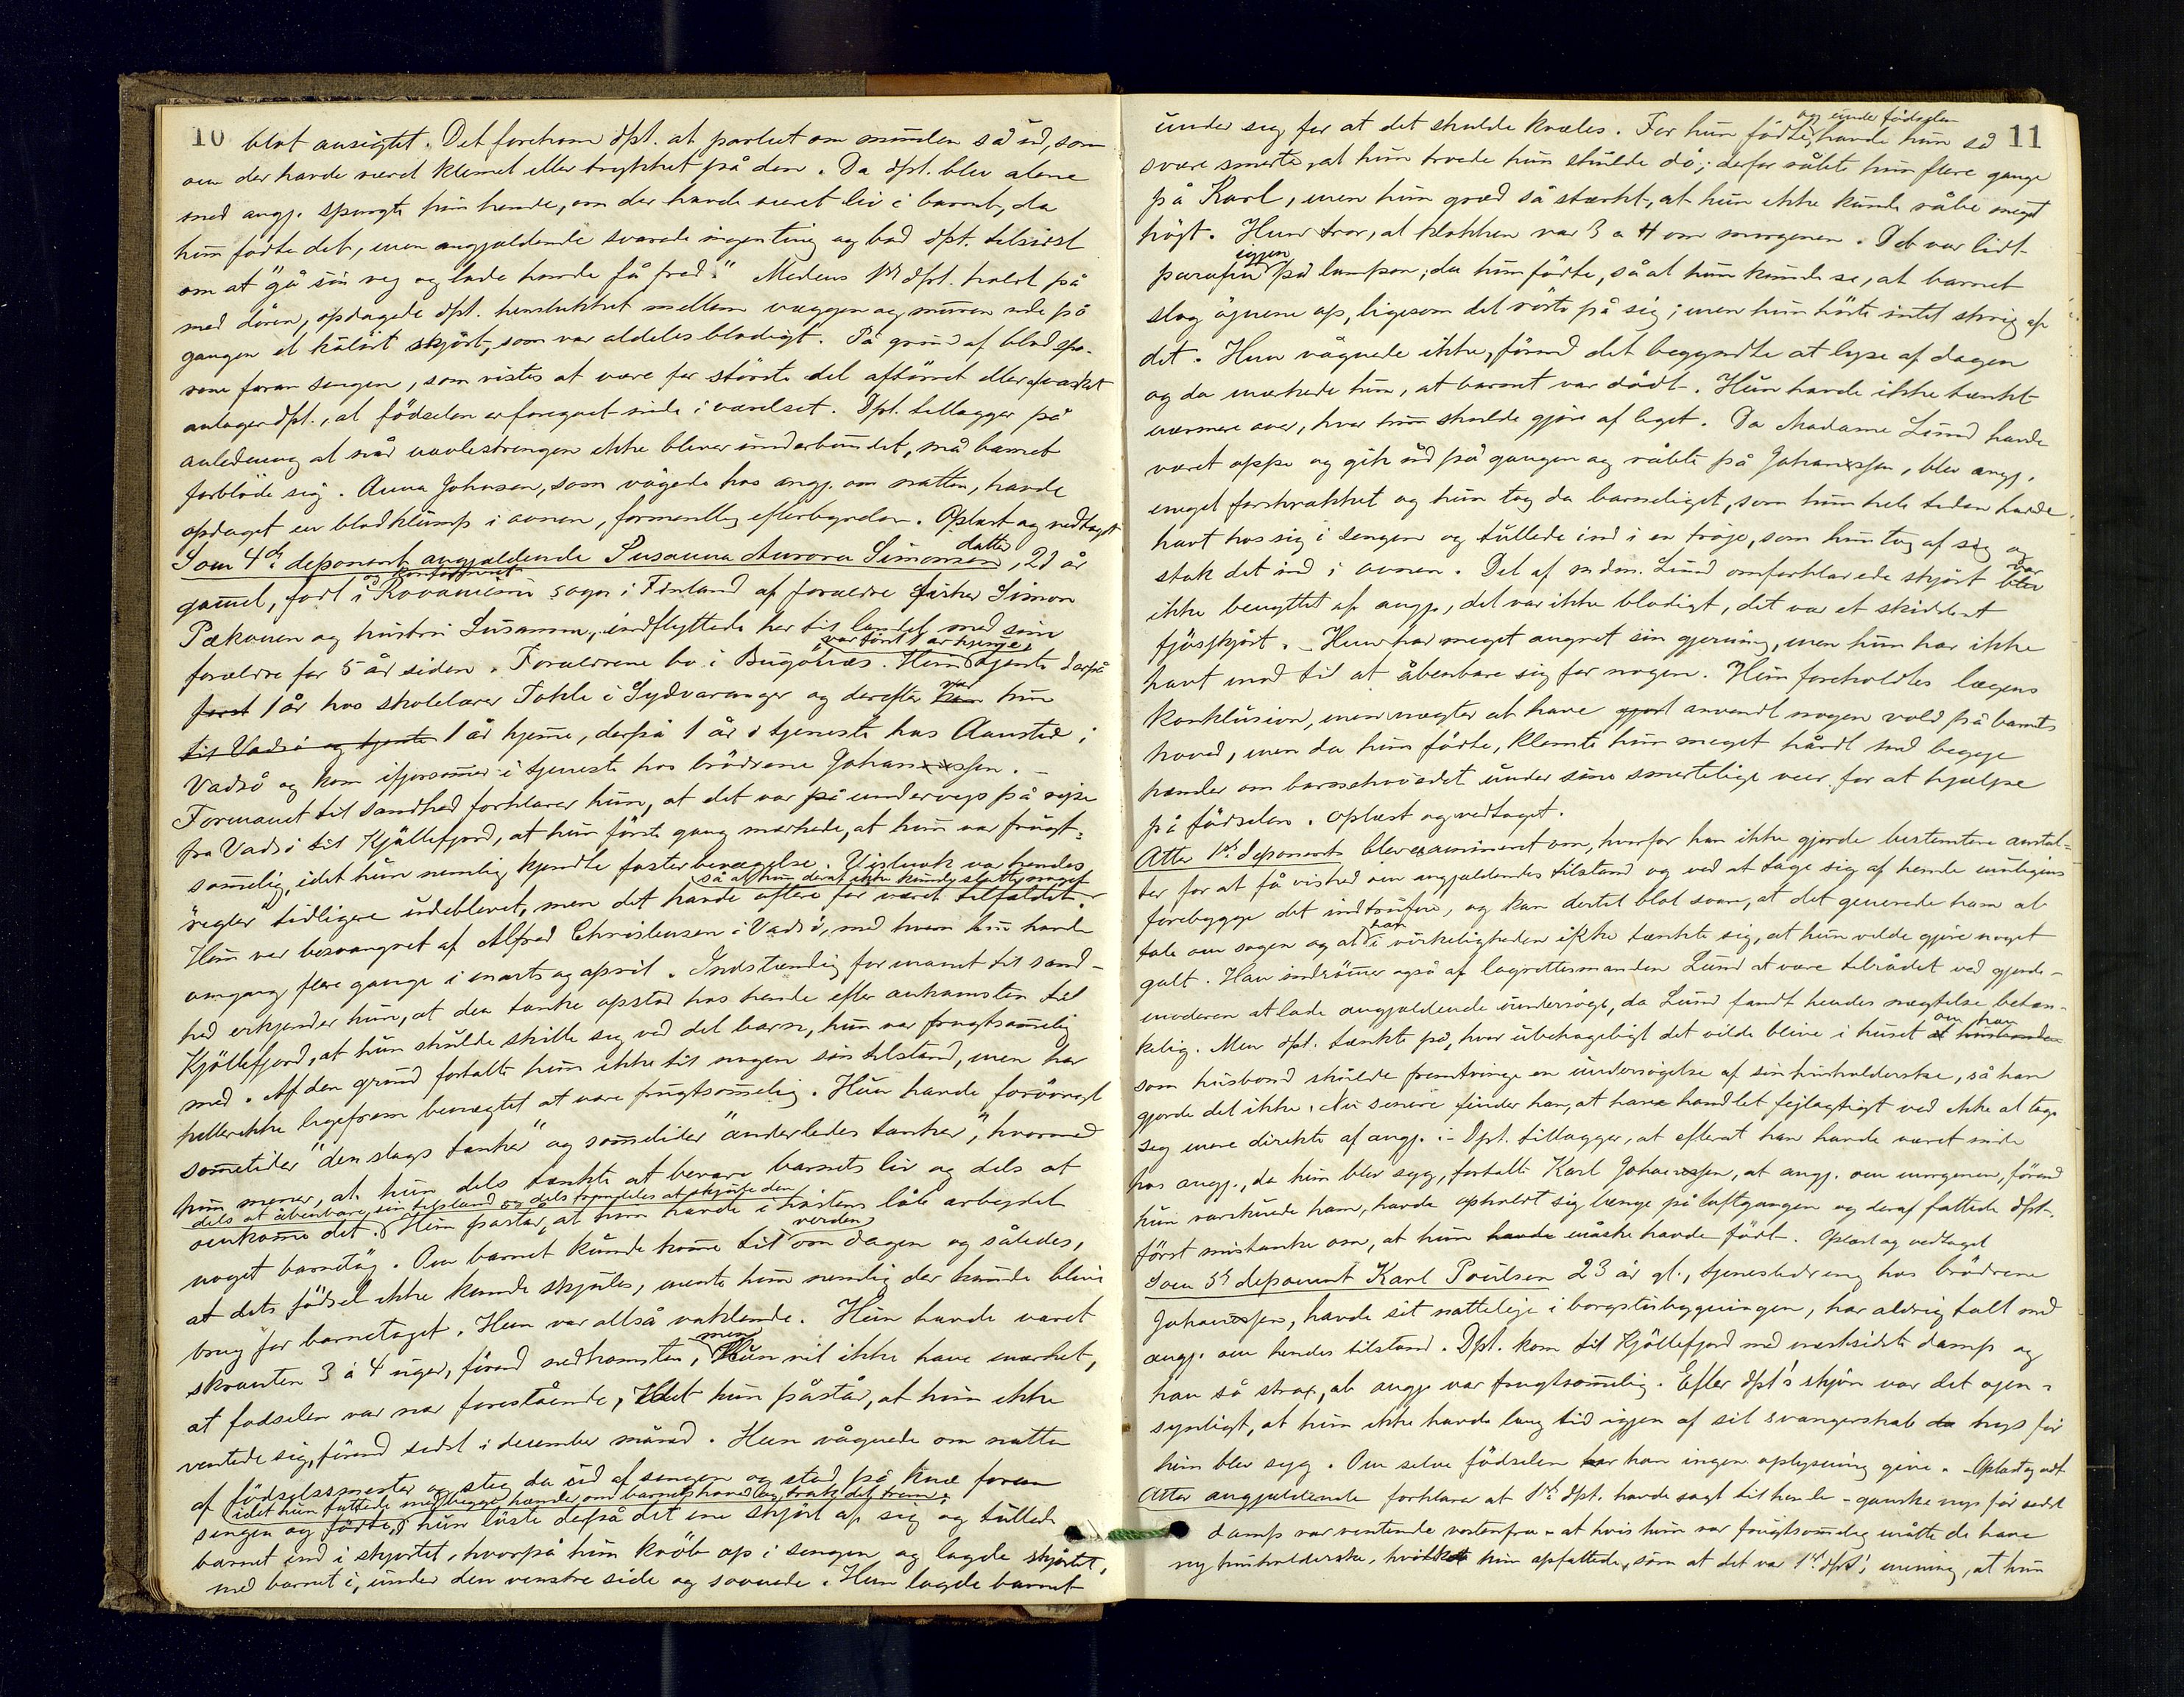 10 blot ansigtet. Det forekom dpt. at partiet om munden så ud, som
om der havde været klemt eller trykket på den. Da dpt. blev alene
med angj. spurgte hun hende, om der havde været liv i barnet, da
hun fødte det, men angjældende svarede ingenting og bad dpt. tilsidst
om at "gå sin veg og lade hende få fred." Medens 1ste dpt. holdt på
med døren, opdagede dpt. henslukket mellem væggen og muren ude på
gangen et kulört skjört, som var aldeles blodigt. På grund af blodspo-
rene foran sengen, som vistes at være for störste del aftörret eller afvasket
antager dpt., at födselen er foregået inde i værelset. Dpt. tillægger på
anledning at når navlestrengen ikke bliver underbundet, må barnet
forbløde sig. Anna Johnsen, som vågede hos angj. om natten, havde
opdaget en blodklump i ovnen, formentlig efterbyrden. Oplæst og vedtaget
Som 4de deponent angjældende Susanna Aurora Simonsen datter, 22 år
gammel, født og konfirmeret i Rovaniemi sogn i Finland af forældre fisker Simon
Pækonen og hustru Susanna, indflyttede her til landet med sine
forældre for 5 år siden. Forældrene bo i Bugönæs. Hun var först 1 år hjemme, tjente derpå
først 1 år hos skolelærer Tokle i Sydvaranger og derefter kom var hun
til Vadsö og tjente 1 år hjemme, derpå 1 år i tjeneste hos Aanstad i
Vadsö og kom ifjorsommer i tjeneste hos brödrene Johanssen. –
Formanet til sandhed forklarer hun, at det var på undervejs på rejse
fra Vadsö til Kjöllefjord, at hun förste gang mærkede, at hun var frugt-
sommelig, idet hun nemlig kjendte fosterbevægelse. Visnok var hendes
"regler" tidligere udeblevet, men det havde oftere før været tilfældet. så at hun deraf ikke kunde slutte noget
Hun var besvangret af Alfred Christensen i Vadsö, med hvem hun havde
omgang flere gange i marts og april. Indstændig formanet til sand-
hed erkjender hun, at den tanke opstod hos hende efter ankomsten til
Kjöllefjord, at hun skulde skille sig ved det barn, hun var frugtsommelig
med. Af den grund fortalte hun ikke til nogen sin tilstand, men har
heller ikke ligefrem benægtet at være frugtsommelig. Hun havde forövrigt
sometider "den slags tanker" og sometider "anderledes tanker", hvormed
hun mener, at hun dels tænkte at bevare barnets liv og dels at
dels at åbenbare sin tilstand og dels fremdeles at skjule den
omkomme det. Hun påstår, at hun havde i höstens löb arbejdet
noget barnetöj. Om barnet kunde komme til verden om dagen og således,
at dets födsel ikke kunde skjules, mente hun nemlig der kunde blive
brug for barnetøjet. Hun var altså vaklende. Hun havde været
skranten 3 á 4 uger, förend nedkomsten, men Hun vil ikke have mærket,
at fødselen var nær forestående, idet hun påstår, at hun ikke
ventede sig, förend sidst i december måned. Hun vågnede om natten
af födselssmerter og steg da ud af sengen og stod på knæ foran
idet hun fattede med begge hænder om barnets hoved og trak det frem.
sengen og födte, hun löste derpå det ene skjört af sig og tullede
barnet ind i skjørtet, hvorpå hun kröb op i sengen og lagde skjörtet,
med barnet i, under den venstre side og sovnede. Hun lagde barnet
11
under sig for at det skulde kvæles. Før hun födte og under födselen havde hun så
svære smerter, at hun troede hun skulde dö; derfor råbte hun flere gange
på Karl, men hun græd så stærkt, at hun ikke kunde råbe meget
högt. Hun tror, at klokken var 3 a 4 om morgenen. Det var lidt
parafin igjen på lampen, da hun födte, så at hun kunde se, at barnet
slog öjnene op, ligesom det rörte på sig; men hun hörte intet skrig af
det. Hun vågnede ikke, förend det begyndte at lyse af dagen
og da mærkede hun, at barnet var dödt. Hun havde ikke tænkt
nærmere over, hvor hun skulde gjöre af liget. Da Madame Lund havde
været oppe og gik ud på gangen og råbte på Johanssen, blev angj.
meget forskrækket og hun tog da barneliget, som hun hele tiden havde
havt hos sig i sengen og tullede ind i en tröje, som hun tog af sig og
stak det ind i ovnen. Det af mdm. Lund omforklarede skjört blev var
ikke benyttet af angj., det var ikke blodigt, det var et skiddent
fjösskjört. – Hun har meget angret sin gjerning, men hun har ikke
havt mod til at åbenbare sig for nogen. Hun foreholdtes lægens
konklusion, men nægter at have gjort anvendt nogen vold på barnets
hoved, men da hun födte, klemte hun meget hårdt med begge
hænder om barnehovedet under sine smertelige veer for at hjælpe
på födselen. Oplæst og vedtaget.
Atter 1ste deponent blev examineret om, hvorfor han ikke gjorde bestemtere anstal-
ter for at få vished om angjældendes tilstand og ved at tage sig af hende muligens
forebygge det indtrufne, og kan dertil blot svare, at det generede ham at
tale om sagen og at han i virkeligheden ikke tænkte sig, at hun vilde gjöre noget
galt. Han indrömmer også af lagrettesmanden Lund at være tilrådet ved gjorde-
moderen at lade angjældende undersöge, da Lund fandt hendes nægtelse betæn-
kelig. Men dpt. tænkte på, hvor ubehageligt det vilde blive i huset at husbonden om han
som husbond skulde fremtvinge en undersögelse af sin husholderske, så han
gjorde det ikke. Nu senere finder han, at have handlet fejlagtigt ved ikke at tage
sig mere direkte af angj. i – Dpt. tillægger, at efterat han havde været inde
hos angj., da hun blev syg, fortalte Karl Johanssen, at angj. om morgenen, förend
hun varskuede ham, havde opholdt sig længe på loftgangen og deraf fattede dpt.
först mistanke om, at hun havde måske havde födt. Oplæst og vedtaget
Som 5te deponent Karl Poulsen 23 år gl., tjenestedreng hos brödrene
Johanssen, havde sit natteleje i borgstubygningen, har aldrig talt med
angj. om hendes tilstand. Dpt. kom til Kjöllefjord med næstsidste damp og
han så strax, at angj. var frugtsommelig. Efter dpt's skjön var det øjen-
synligt, at hun ikke havde lang tid igjen af sit svangerskab da nys för
hun blev syg. Om selve födselen kan han ingen oplysning give. – Oplæst og vedt
Atter angjældende forklarer at 1ste dpt. havde sagt til hende – ganske nys för sidst
damp var ventende vestenfra – at hvis hun var frugtsommelig måtte de have
ny husholderske, hvilket hun opfattede, som at det var 1ste dpt's mening, at hun